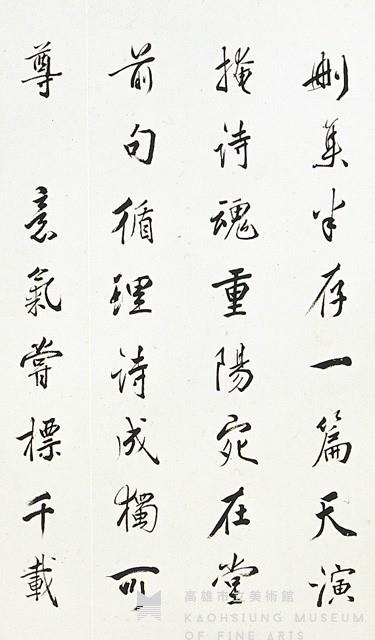 刪集半存一篇天演
掩詩魂重陽宛在堂
前句循理詩成獨所
尊 意氣嘗標千載
高雄市立美術館
KAOHSIUNG MUSEUM
OF FINE ARTS